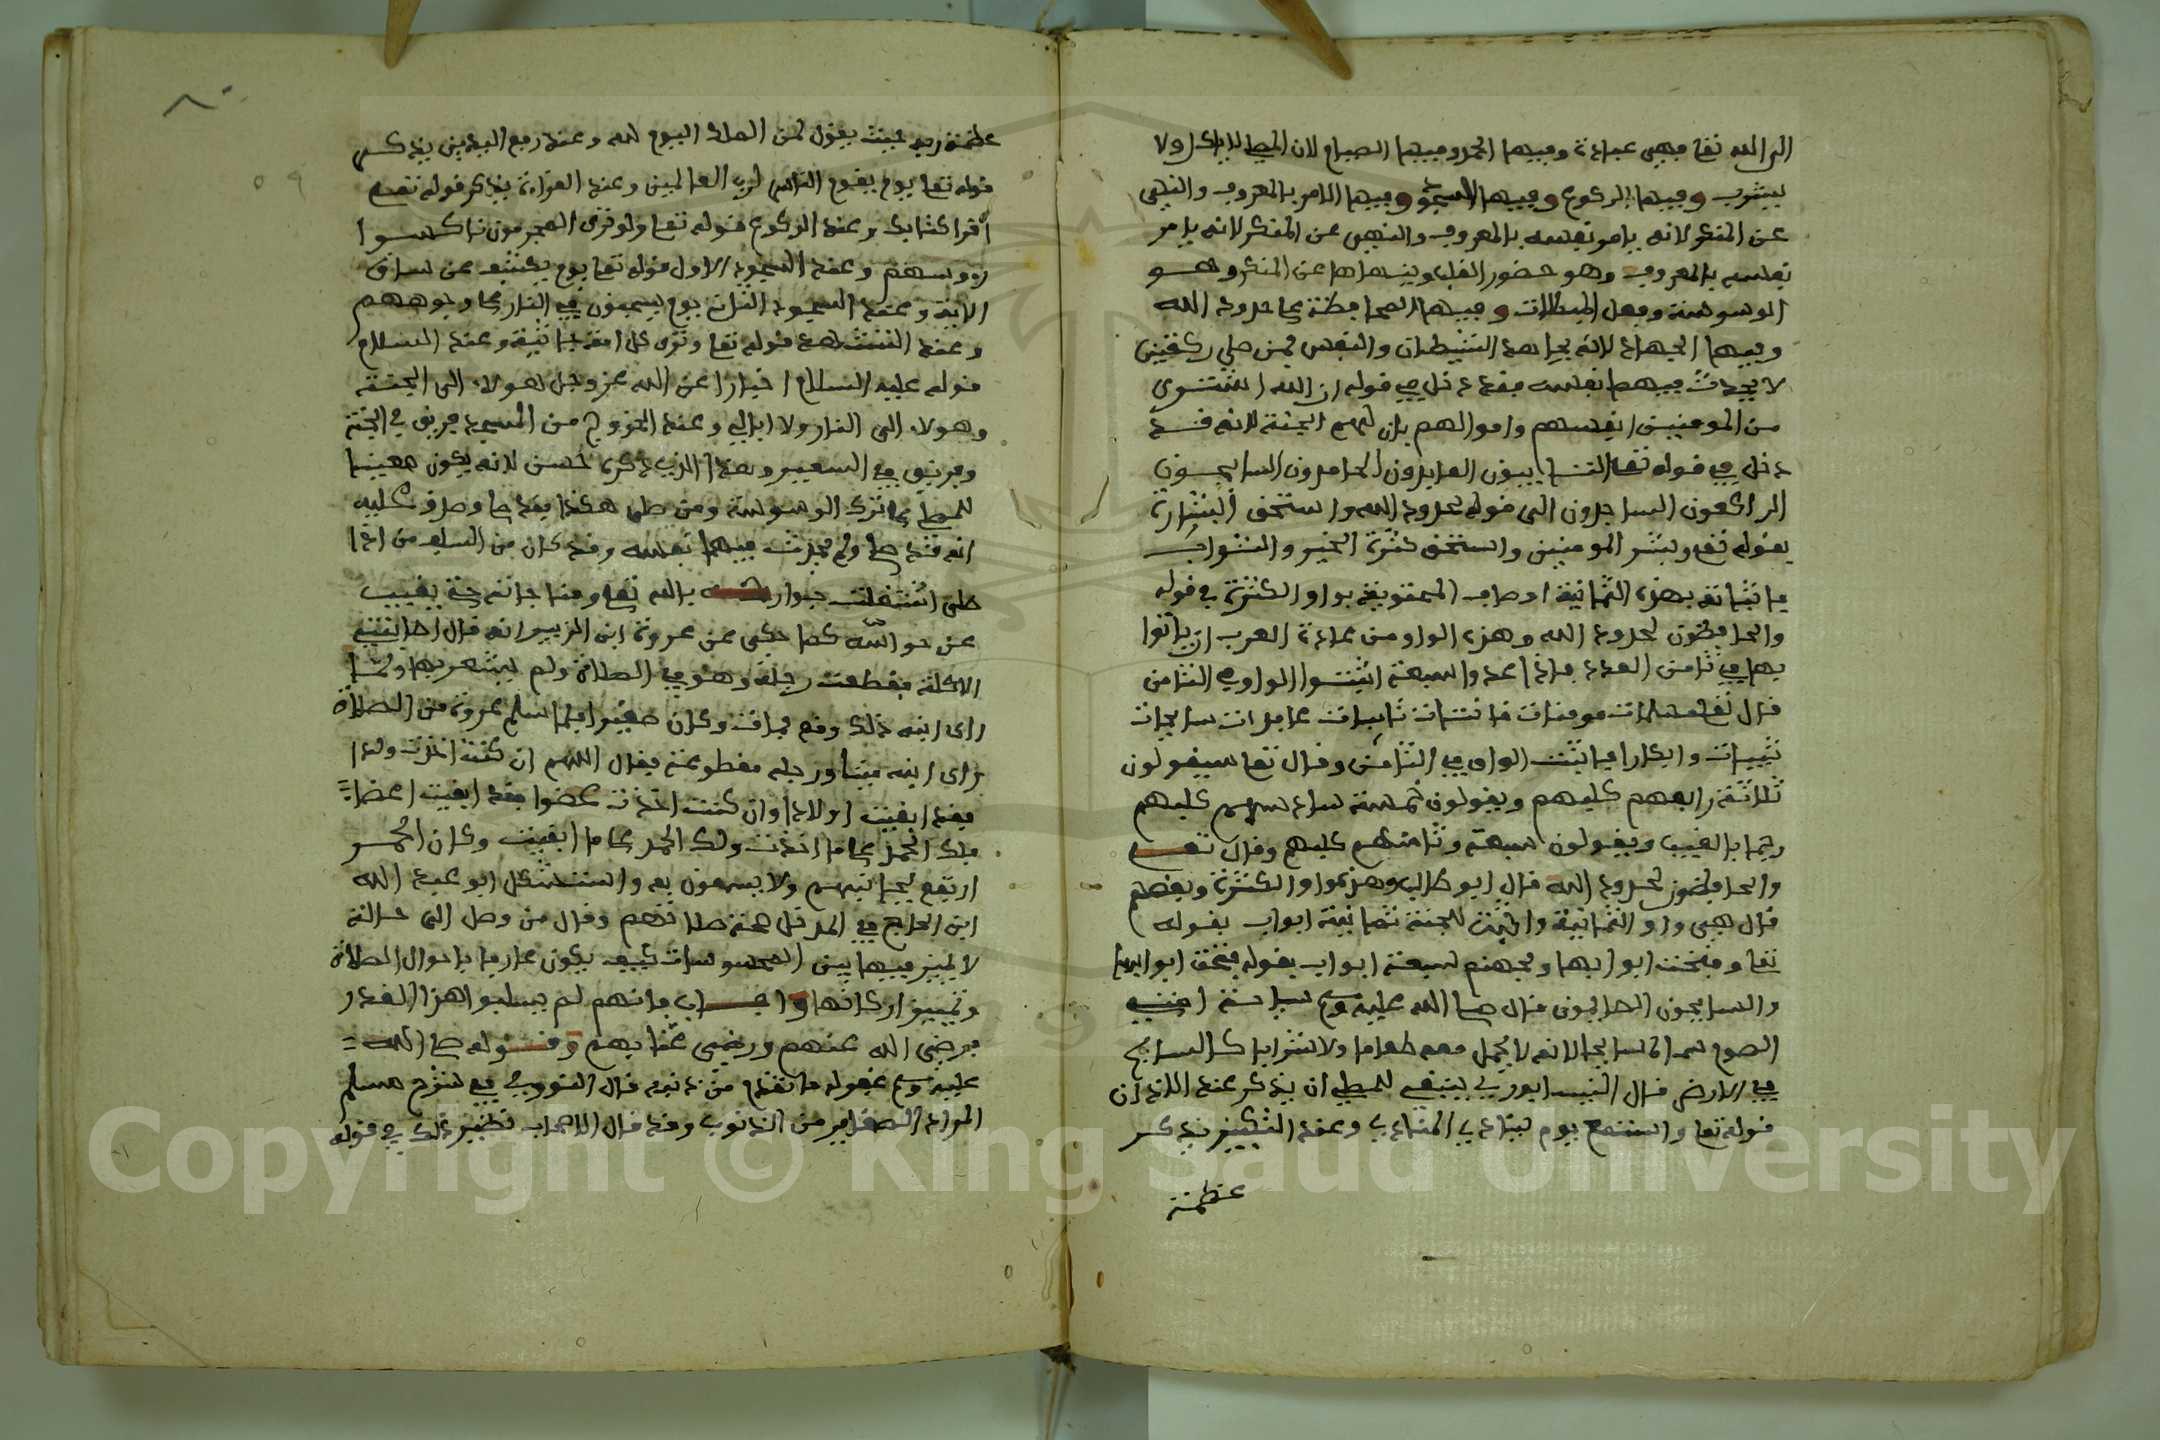 الى الله تعا فهى عبادة وفيها الحمد وفيها الصيام لان المصلى لاياكل ولا
يشرب وفيها الركوع وفيها السجود وفيها الامر بالمعروف والنهى
عن المنكر لانه يامر نفسه بالمعروف والنهى عن المنكر لانه يامر
نفسه بالمعروف وهو حضور القلب وينهاها عن المنكر وهو
الوسوسة وفعل المبطلات وفيها المحافظة على حدود الله
وفيها الجهاد لانه يجاهد الشيطان والنفس فمن صلى ركعتين
لا يحدث فيهما نفسه فقد دخل في قوله ان الله اشترى
من المومنين انفسهم واموالهم بان لهم الجنة لانه قد
دخل في قوله تعا التايبون العابدون الحامدون السايحون
الراكعون الساجدون الى قوله لحدود الله واستحق البشارة
بقوله تعا وبشر المومنين واستحق كثرة الخير والثواب
باتيانه بهذه الثمانية اوصاف المعقوبة بواو الكثرة في قوله
والحافظون لحدود الله وهذه الواو من عادة العرب ان ياتوا
بها في ثامن العدد فاذا عدوا سبعة اثبتوا الواو في الثامن
قال تعا مسلمات مومنات قانتات تايبات عابدات سايحات
ثيبات وابكارا فاثبتت الواو في الثامن وقال تعا سيقولون
ثلاثة رابعهم كلبهم ويقولون خمسة سادسهم كلبهم
رجما بالغيب ويقولون سبعة وثامنهم كلبهم وقال تعا
والحافظون لحدود الله قال ابو طالب وهذه واو الكثرة وبعضهم
قال هى واو الثمانية واثبت للجنة ثمانية ابواب بقوله
تعا وفتحت ابوابها ولجهنم سبعة ابواب بقوله فتحت ابوابها
والسايحون الصايمون قال صلى الله عليه وسلم سياحة امتى
الصوم سمى سايحا لانه لا يحمل معه طعاما ولا شرابا كالسايح
في الارض قال النيسابوري ينبغى للمصلى ان يذكر عند الاذان
قوله تعا واستمع يوم ينادي المنادي وعند التكبير يذكر
عظمة
عظمة ربه بحيث يقول لمن الملك اليوم لله وعند رفع اليدين يذكر
قوله تعا يوم يقوم الناس لرب العالمين وعند القراءة يذكر قوله تعا
اقرا كتابك وعند الركوع قوله تعا ولو ترى المجرمون ناكسوا
رءوسهم وعند السجود الاول قوله تعا يوم يكشف عن ساق
الاية وعند السجود الثاني يوم يسحبون في النار على وجوههم
وعند التشهد قوله تعا وترى كل امة جاثية وعند السلام
قوله عليه السلام اخبارا عن الله عز وجل هولاء الى الجنة
وهولاء الى النار ولا ابالي وعند الخروج من المسجد فريق في الجنة
وفريق في السعير وهذا الذي ذكره حسن لانه يكون معينا
للمصلي على ترك الوسوسة ومن صلى هكذا فقد صلى وصدق عليه
انه قد صلى ولم يحدث فيهما نفسه وقد كان من السلف من اذا
صلى اشتغلت جوارحه بالله تعا ومناجاته حتى يغيب
عن حواسه كما حكى عن عروة ابن الزبير انه قال اصابته
الاكلة فقطعت رجله وهو في الصلاة ولم يشعر بها ولما
راى ابنه ذلك وقع فمات وكان صغيرا فلما سلم عروة من الصلاة
راى ابنه ميتا ورجله مقطوعة فقال اللهم ان كنت اخذت ولدا
فقد ابقيت اولادا وان كنت اخذت عضوا فقد ابقيت اعضاء
فلك الحمد على ما اخذت ولك الحمد على ما ابقيت وكان
ارتفع بجانبهم ولا يسمعون به واستشكل ابو عبد الله
ابن الحاج في المدخل صحة صلاتهم وقال من وصل الى حالة
لا يميز فيها بين المحسوسات كيف يكون عارفا باحوال الصلاة
وتمييز اركانها واجاب بانهم لم يسلبوا هذا القدر
فرضي الله عنهم ورضى عنا بهم وقوله صلى الله
عليه وسلم غفر له ما تقدم من ذنبه قال النووي في شرح مسلم
المراد الصغاير من الذنوب وقد قال الاصحاب نظير ذلك في قوله
Copyright © King Saud University